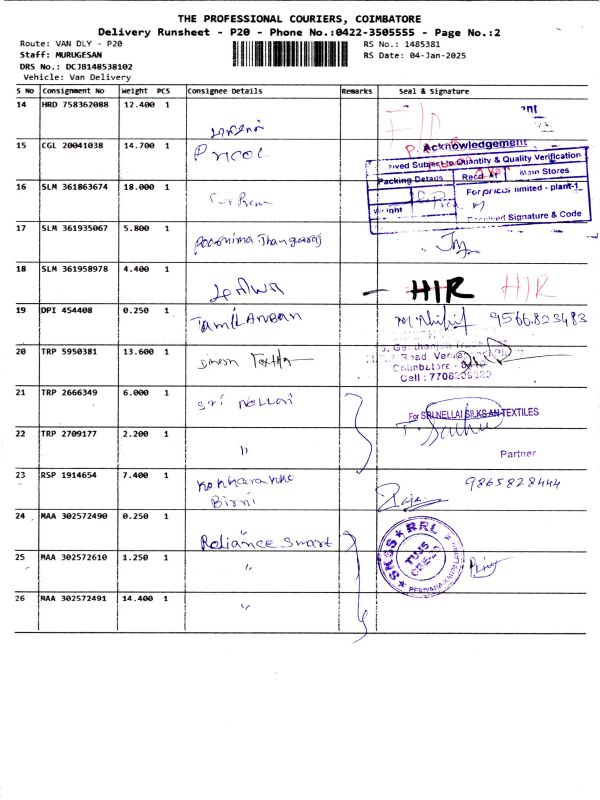 THE PROFESSIONAL COURIERS, COIMBATORE
Delivery Runsheet - P20 - Phone No.:0422-3505555 - Page No.:2
Route: VAN DLY - P20 RS No.: 1485381
Staff: MURUGESAN RS Date: 04-Jan-2025
DRS No.: DCJB148538102
Vehicle: Van Delivery
S No Consignment No Weight PCS Consignee Details Remarks Seal & Signature
14 HRD 758362088 12.400 1
15 CGL 20041038 14.700 1 Pricol
Acknowledgement
Subject to Quantity & Quality Verification
Packing Details Recd AT Main Stores
16 SLM 361863674 18.000 1
For pricol limited - plant-1
Received Signature & Code
17 SLM 361935067 5.800 1 Poornima Thangarraj
18 SLM 361958978 4.400 1 HIR HIR
19 DPI 454408 0.250 1 TamilANBAN 9566823483
20 TRP 5950381 13.600 1
Road,
Coimbatore
Cell : 7708
21 TRP 2666349 6.000 1 Sri Nellai
For SRI NELLAI SILKS AN TEXTILES
22 TRP 2709177 2.200 1 "
Partner
23 RSP 1914654 7.400 1 Birni 9865828444
Raja
24 MAA 302572490 0.250 1 Reliance Smart
SKGS ★ RRL ★
TU55
25 MAA 302572610 1.250 1 "
26 MAA 302572491 14.400 1 "